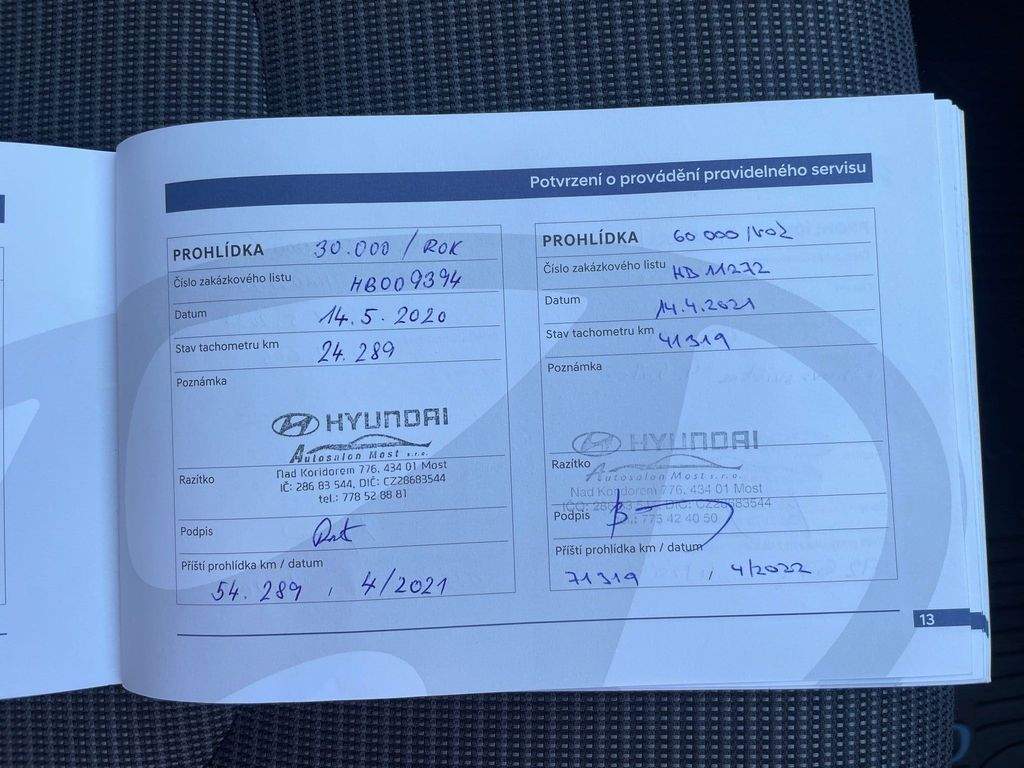 Potvrzení o provádění pravidelného servisu
PROHLÍDKA 30.000 / ROK
Číslo zakázkového listu HB009394
Datum 14. 5. 2020
Stav tachometru km 24. 289
Poznámka
HYUNDAI
Autosalon Most s.r.o.
Razítko
Nad Koridorem 776, 434 01 Most
IČ: 286 83 544, DIČ: CZ28683544
tel.: 778 52 88 81
Podpis
Příští prohlídka km / datum
54. 289 , 4/2021
PROHLÍDKA 60 000 /ROK
Číslo zakázkového listu HB 11272
Datum 14.4.2021
Stav tachometru km 41319
Poznámka
HYUNDAI
Razítko
Autosalon Most s.r.o.
Nad Koridorem 776, 434 01 Most
DIČ: CZ28683544
Podpis
Příští prohlídka km / datum
71319 , 4/2022
13